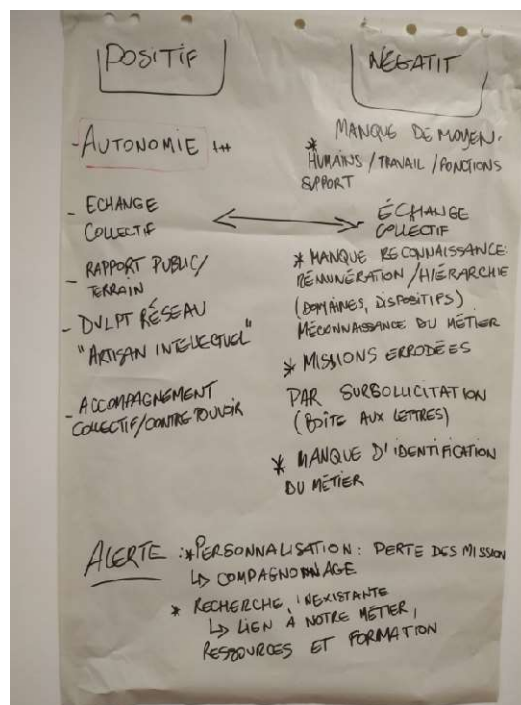 POSITIF
- AUTONOMIE +++
- ECHANGE
COLLECTIF
- RAPPORT PUBLIC/
TERRAIN
- DVLPT RÉSEAU
"ARTISAN INTELLECTUEL"
- ACCOMPAGNEMENT
COLLECTIF/CONTRE POUVOIR
NÉGATIF
* MANQUE DE MOYEN.
HUMAINS / TRAVAIL / FONCTIONS
SUPPORT
- ÉCHANGE
COLLECTIF
* MANQUE RECONNAISSANCE:
RÉMUNÉRATION / HIÉRARCHIE
(DOMAINES, DISPOSITIFS)
MÉCONNAISSANCE DU MÉTIER
* MISSIONS ERRODÉES
PAR SURSOLLICITATION
(BOÎTE AUX LETTRES)
* MANQUE D'IDENTIFICATION
DU MÉTIER
ALERTE : * PERSONNALISATION : PERTE DES MISSION
↳ COMPAGNONNAGE
* RECHERCHE, INEXISTANTE
↳ LIEN À NOTRE MÉTIER,
RESSOURCES ET FORMATION